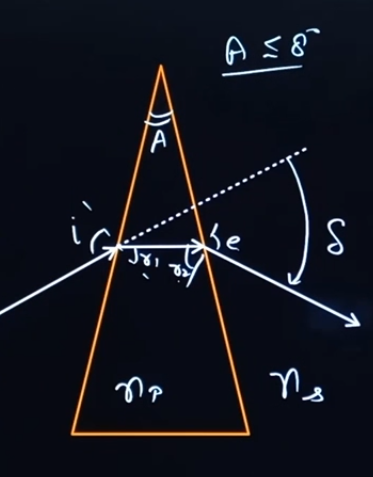 A ≤ 8°
A
i
e
r₁
r₂
δ
nₚ
nₛ